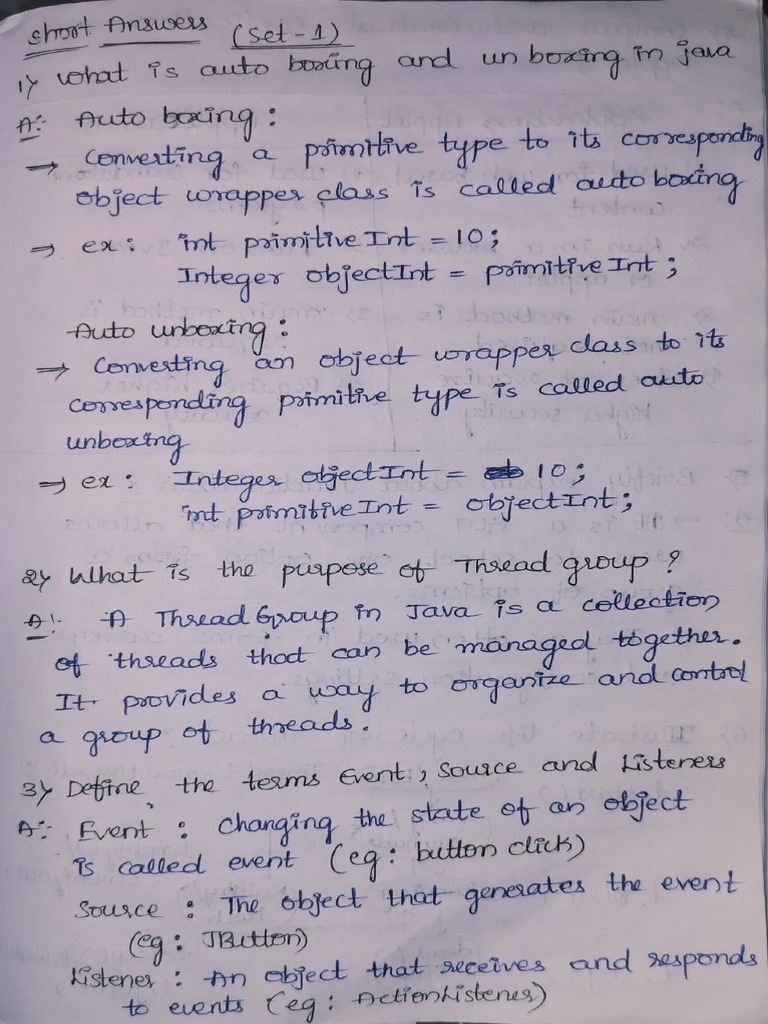 Short Answers (Set-1)
1) What is auto boxing and un boxing in java
A: Auto boxing :
→ Converting a primitive type to its corresponding
object wrapper class is called auto boxing
→ ex : int primitive Int = 10;
Integer objectInt = primitive Int ;
Auto unboxing :
→ Converting an object wrapper class to its
corresponding primitive type is called auto
unboxing
→ ex : Integer objectInt = 10;
int primitive Int = objectInt;
2) What is the purpose of Thread group ?
A: A Thread Group in Java is a collection
of threads that can be managed together.
It provides a way to organize and control
a group of threads.
3) Define, the terms Event, Source and Listeners
A: Event : Changing the state of an object
is called event (eg : button click)
Source : The object that generates the event
(eg : JButton)
Listener : An object that receives and responds
to events (eg : ActionListener)